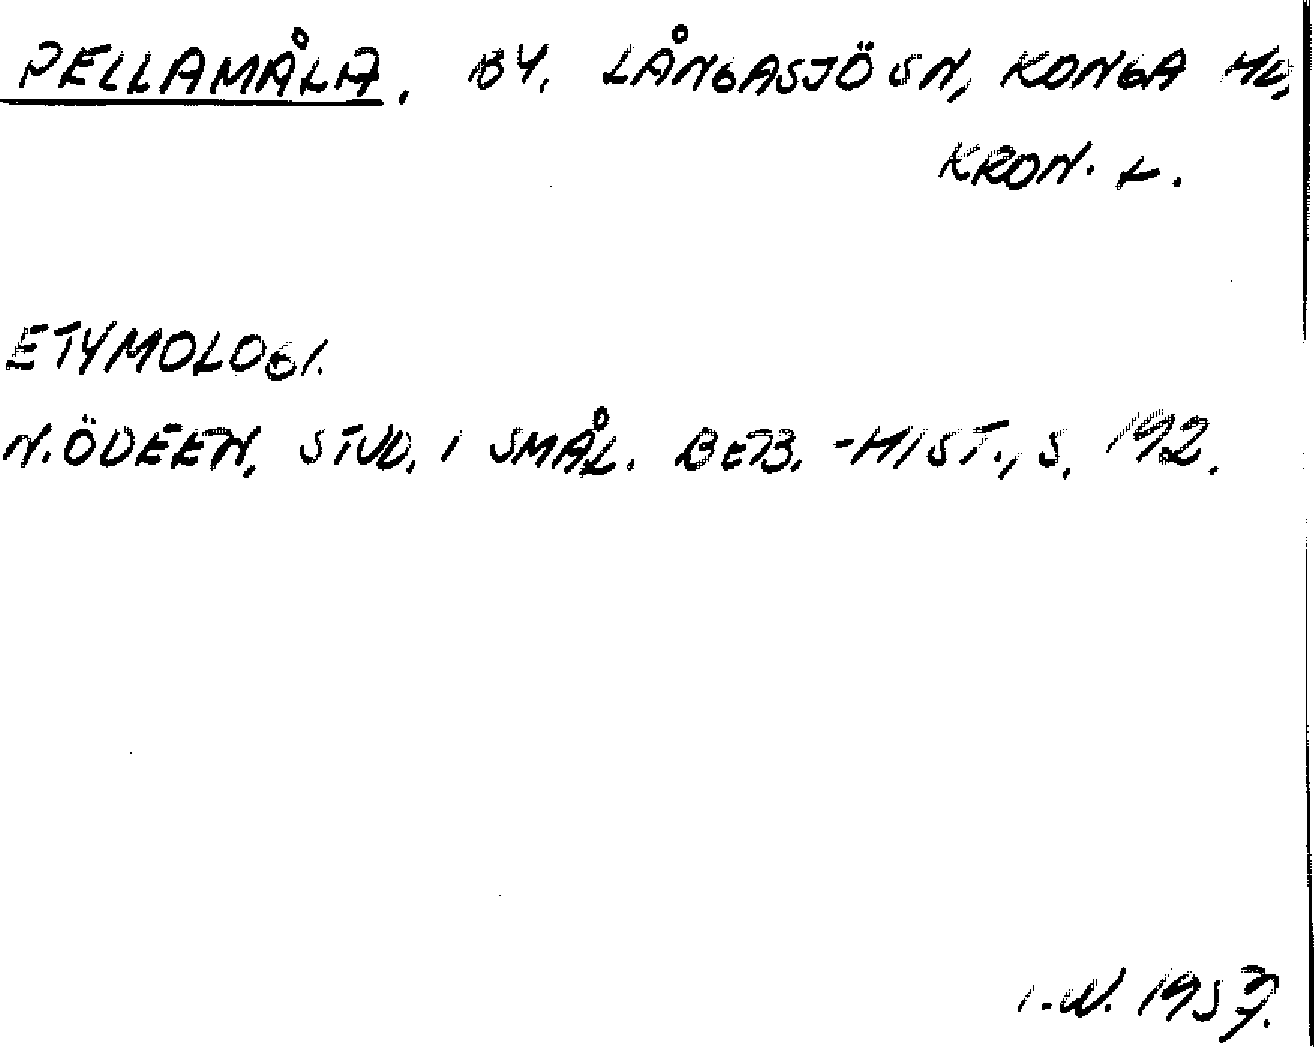 PELLAMÅLA. BY. LÅNGASJÖ SN, KONGA HD,
KRON. L.
ETYMOLOGI.
N. ÖDEEN, STUD. I SMÅL. BEB. -HIST., S. 192.
I.N. 1957.